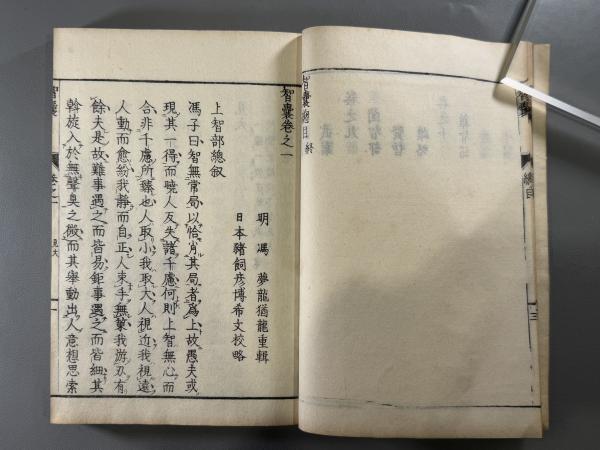 智囊 總目 三
智囊總目終
智囊卷之一
明 馮 夢龍猶龍重輯
日本豬飼彦博希文校略
上智部總叙
馮子曰智無常局以恰肖其局者爲上故愚夫或
現其一得而曉人反失諸千慮何則上智無心而
合非千慮所臻也人取小我取大人視近我視遠
人動而愈紛我靜而自正人束手無策我游刃有
餘夫是故難事遇之而皆易鉅事遇之而皆細其
斡旋入於無聲臭之微而其舉動出人意想思索
智囊 卷之一 見大 一